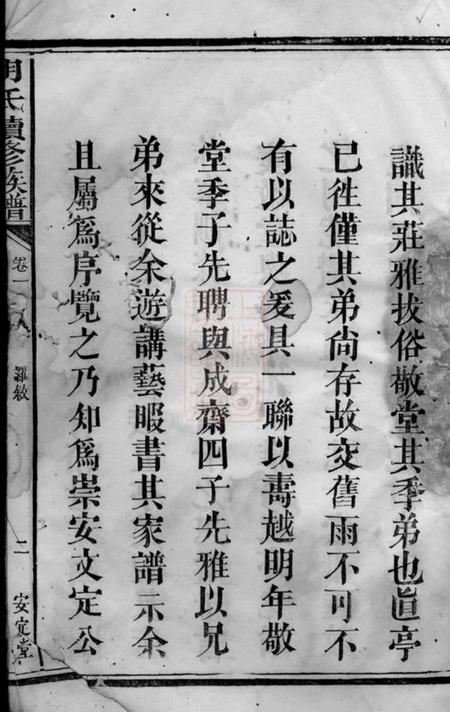 識其莊雅拔俗敬堂其季弟也直亭
已徃僅其弟尙存故交舊雨不可不
有以誌之爰具一聯以壽越明年敬
堂季子先聘與成齋四子先雅以兄
弟來從余遊講藝暇書其家譜示余
且屬爲序覽之乃知爲崇安文定公
胡氏續修族譜
卷一
二
安定堂